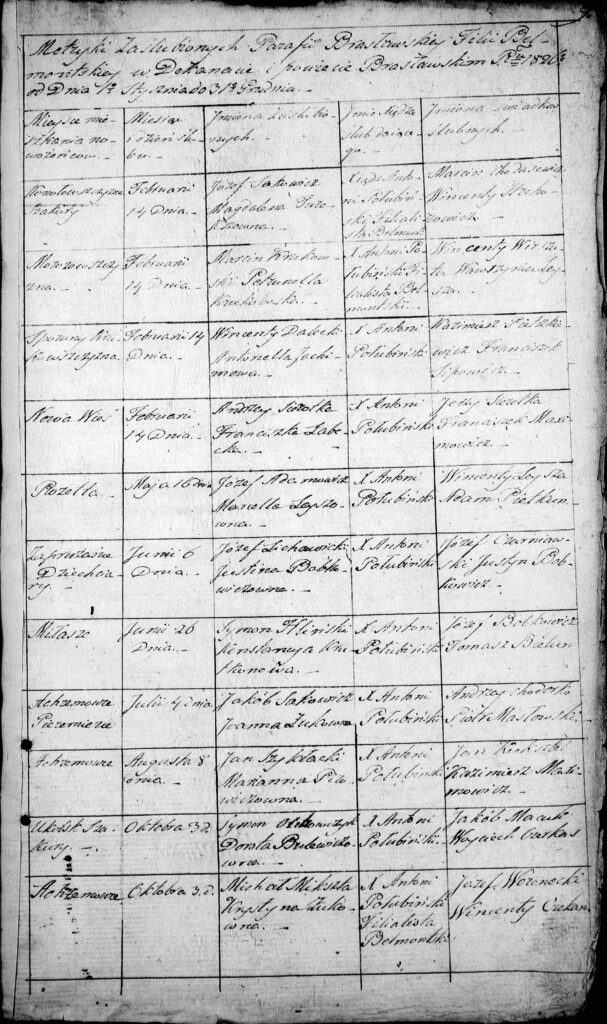 Metryki Zaślubionych Parafii Brasławskiej Filii Bel-
montskiej w Dekanacie i powiecie Brasławskim R. 1826
od Dnia 1 Stycznia do 31 Grudnia.
Miejsce mie-
szkania no-
wożeńców.
Miesiąc
i dzień ślu-
bu.
Imiona Zaślubio-
nych.
Imie Xiędza
ślub dające-
go.
Imiona świadków
ślubnych.
Februarii
14 Dnia.
Józef Sakowicz
Magdalena
Xiądz Anto-
ni Połubiń-
ski Filiali-
sta Belmont.
Marcin Chodasewicz
Wincenty
Morozowszczy-
zna.
Februarii
14 Dnia.
Marcin Krukow-
ski Petrunella
Krukowska.
X Antoni Po-
łubiński Fi-
lialista Bel-
montski.
Wincenty
Wawrzyniec Ley-
sza.
Februarii 14
Dnia.
Wincenty Dalecki
Antonella Jochi-
mowa.
X Antoni
Połubiński
Kazimierz Pietka-
wicz Franciszek
Sipowicz.
Nowa Wieś
Februarii
14 Dnia.
Andrzey Siołka
Franciszka Labe-
cka.
X Antoni
Połubiński
Jerzy
Franciszek Maxi-
mowicz.
Rozetta
Maja 16 dnia
Józef Adamowicz
Marcella Leyszo-
wna.
X Antoni
Połubiński
Wincenty Leysza
Adam Pietkun.
Zaprudzie
Dziechcia-
ry.
Junii 6
Dnia.
Józef Lichowicki
Justina Bobko-
wiczowna.
X Antoni
Połubiński
Józef Czerniaw-
ski Justyn Bob-
kowicz
Milasze
Junii 26
Dnia.
Symon Hliński
Konstancya Kru-
konowa.
X Antoni
Połubiński
Józef Bobkowicz
Tomasz Bielun
Achremowce
Julii 4 dnia
Jakób Sakowicz
Joanna Żukowa
X Antoni
Połubiński
Andrzey Chodorko
Piotr Masłowski.
Achremowce
Augusta 8
dnia.
Jan Szykłacki
Marianna Pie-
wiczowna.
X Antoni
Połubiński
Jan Kiersztel
Kazimierz Maxi-
mowicz.
Oktobra 3 d.
Symon
Dorota
X Antoni
Połubiński.
Jakób Macuk
Woyciech Czerkas
Achremowce
Oktobra 3. d.
Michał Mikszta
Krystyna Żuko-
wna.
X Antoni
Połubiński
Filialista
Belmontski
Józef Woronecki
Wincenty Czekan